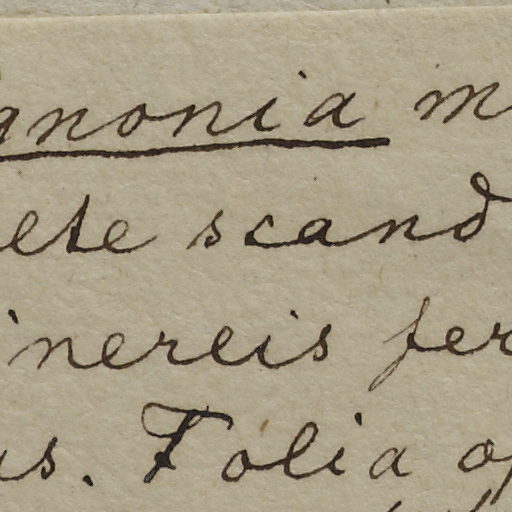 gnonia m
ete scand
inereis fer
us. Folia op